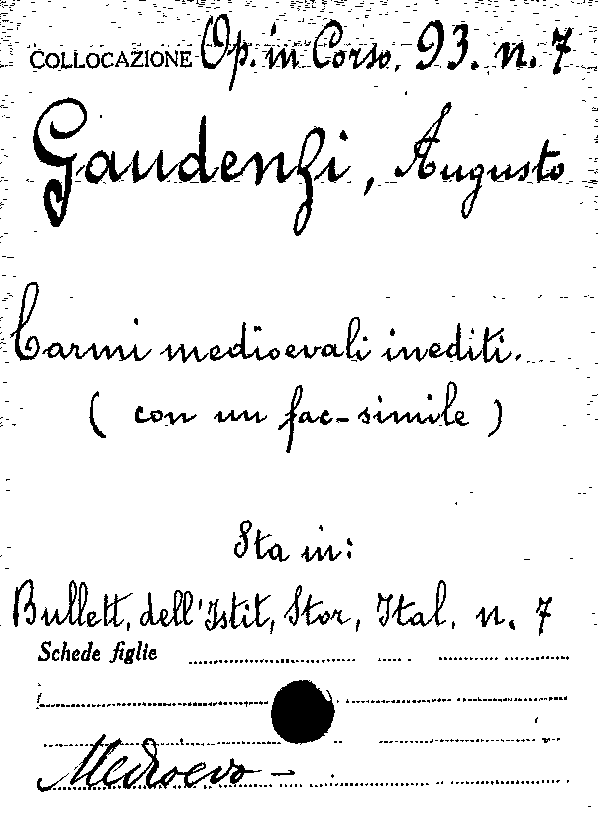 COLLOCAZIONE Op. in Corso. 93. n. 7
Gaudenzi, Augusto
Carmi medioevali inediti.
( con un fac-simile )
Sta in:
Bullett. dell'Istit. Stor. Ital. n. 7
Schede figlie
Medioevo -